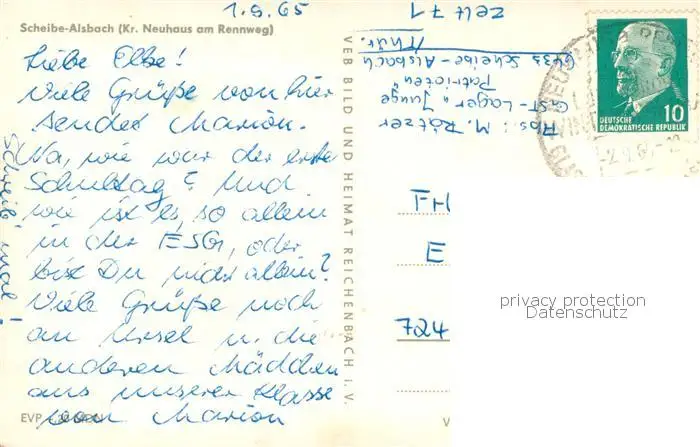 1.9.65
Scheibe-Alsbach (Kr. Neuhaus am Rennweg)
Liebe Elke!
Viele Grüße von hier
sendet Marion.
Na, wie war der erste
Schultag? Und
wie ist es, so allein
in der ESG, oder
bist Du nicht allein?
Viele Grüße noch
an Ursel u. die
anderen Mädchen
aus unserer Klasse
von Marion
Schreib' mal!
EVP
VEB BILD UND HEIMAT REICHENBACH i. V.
Abs.: M. Rätzer
GST-Lager „Junge
Patrioten“
6433 Scheibe-Alsbach
/Thür.
Zelt 71
10
DEUTSCHE
DEMOKRATISCHE REPUBLIK
FH
E
724
V
privacy protection
Datenschutz